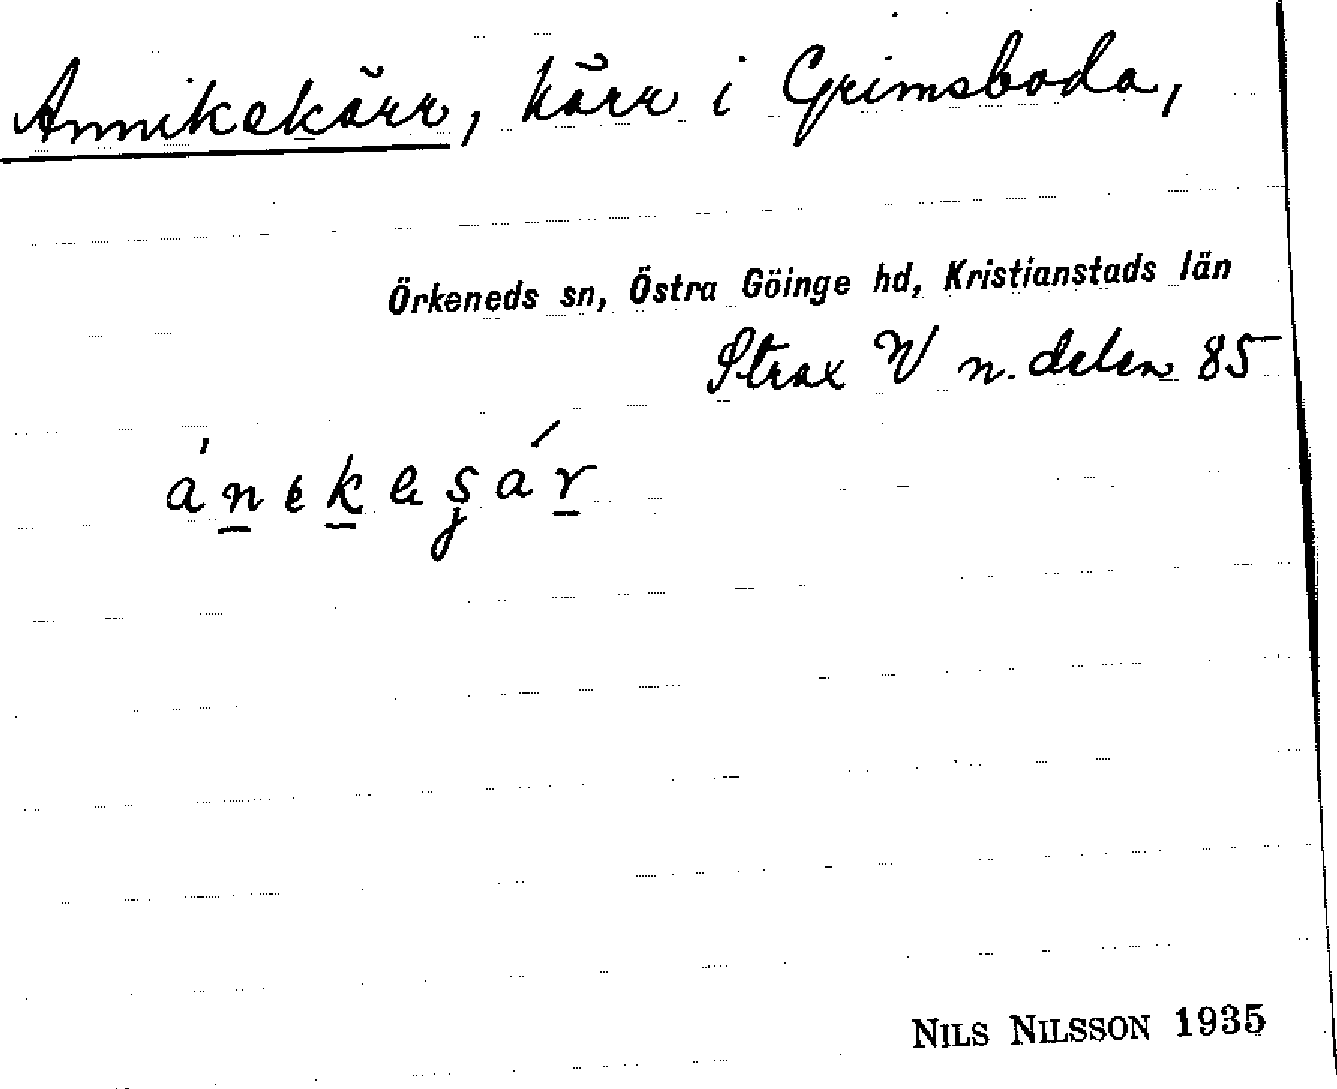 Annikekärr, kärr i Grimsboda,
Örkeneds sn, Östra Göinge hd, Kristianstads län
Strax V n. delen 85
NILS NILSSON 1935